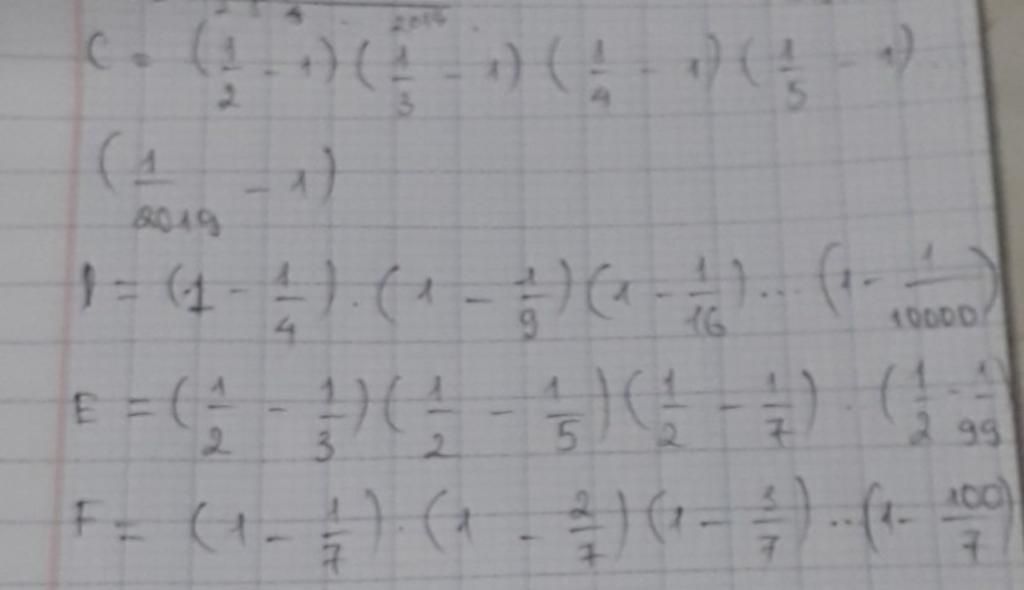 2014
C = (1/2 - 1)(1/3 - 1)(1/4 - 1)(1/5 - 1)
(1/2019 - 1)
D = (1 - 1/4).(1 - 1/9)(1 - 1/16)...(1 - 1/10000)
E = (1/2 - 1/3)(1/2 - 1/5)(1/2 - 1/7).(1/2 - 1/99)
F = (1 - 1/7).(1 - 2/7)(1 - 3/7)...(1 - 100/7)